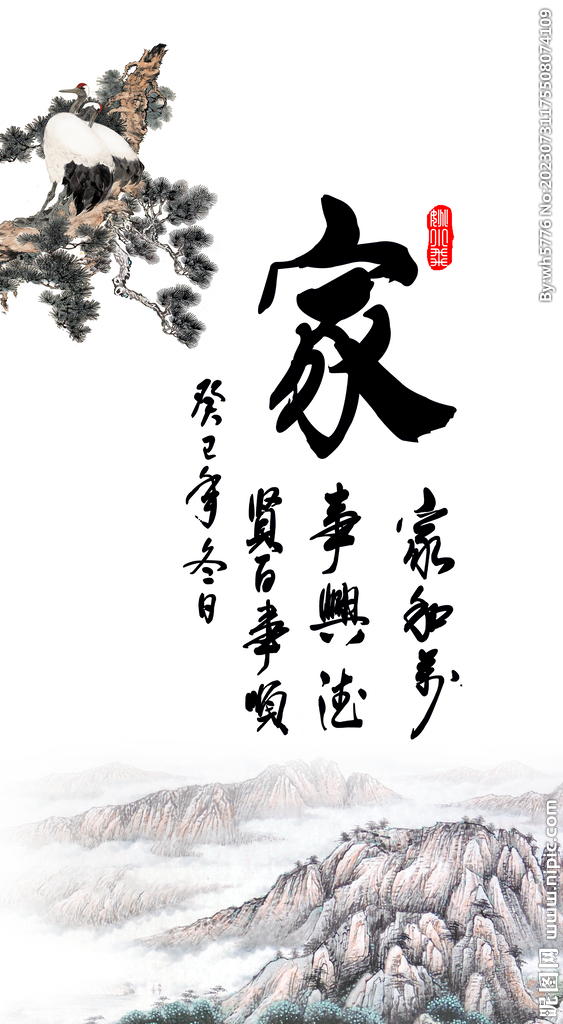 家
家和萬
事興德
賢百事順
癸巳年冬日
By:wh5776 No:20230731175508074109
昵图网 www.nipic.com